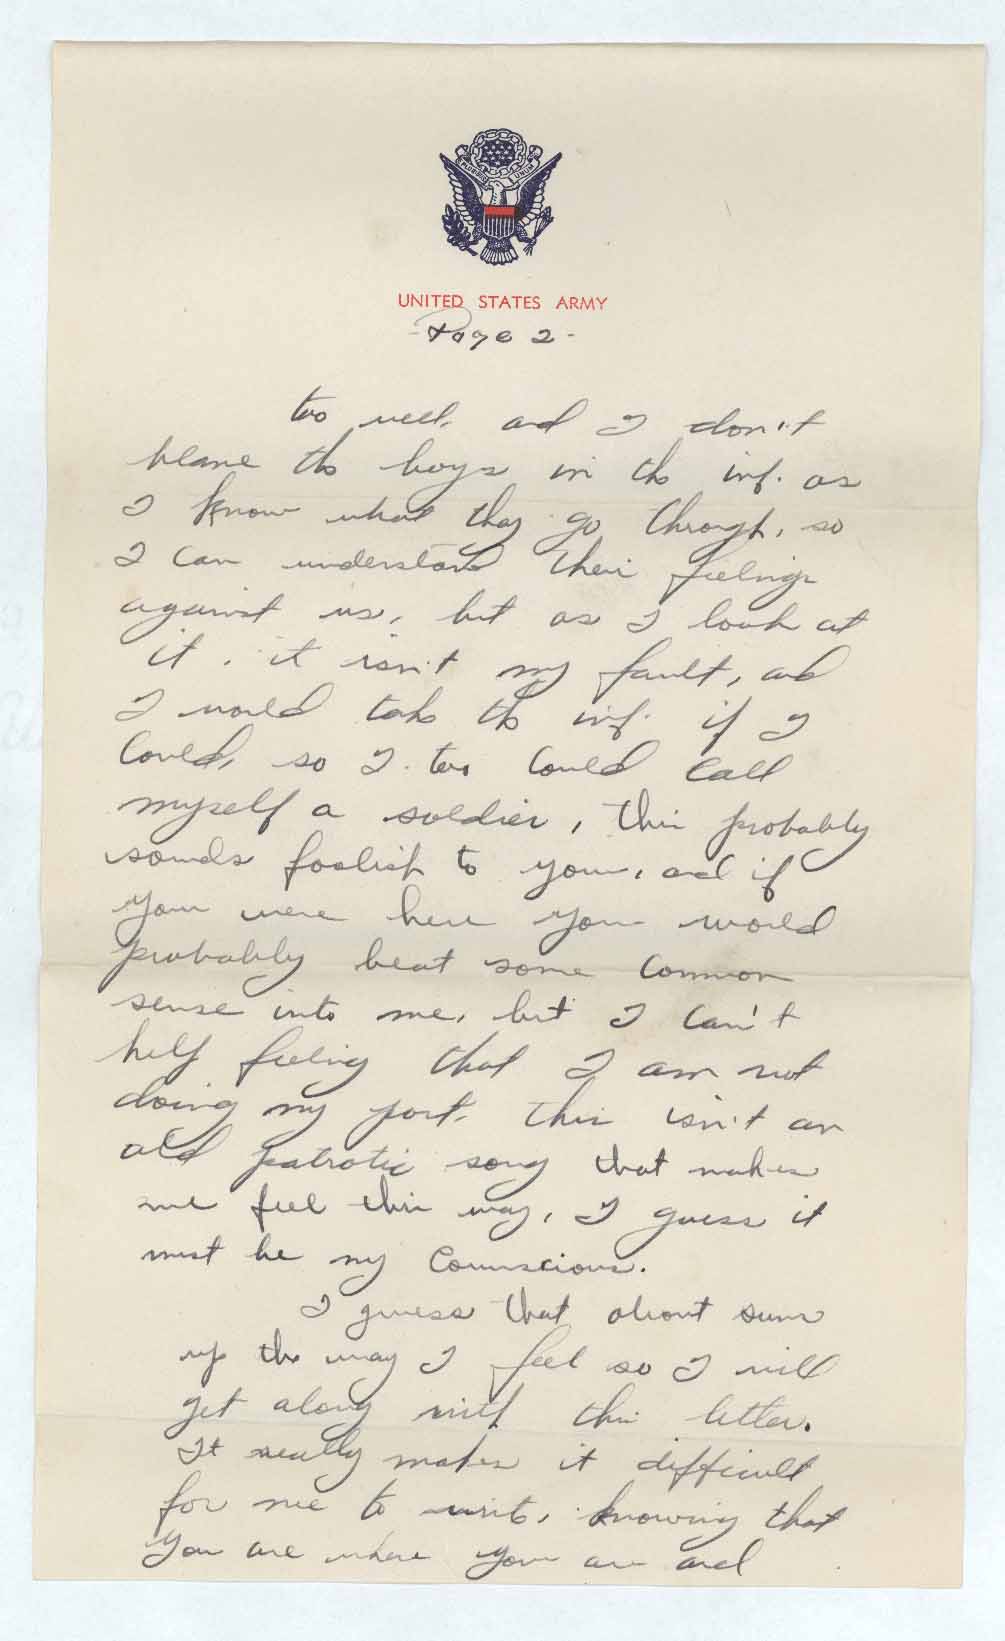 E PLURIBUS UNUM
UNITED STATES ARMY
- Page 2 -
too well, and I don't
blame the boys in the inf. as
I know what they go through, so
I can understand their feelings
against us, but as I look at
it, it isn't my fault, and
I would take the inf. if I
could, so I too could call
myself a soldier, this probably
sounds foolish to you, and if
you were here you would
probably beat some common
sense into me, but I can't
help feeling that I am not
doing my part, this isn't an
old patrotic song that makes
me feel this way, I guess it
must be my Counscious.
I guess that about sums
up the way I feel so I will
get along with this letter.
It really makes it difficult
for me to write, knowing that
you are where you are and